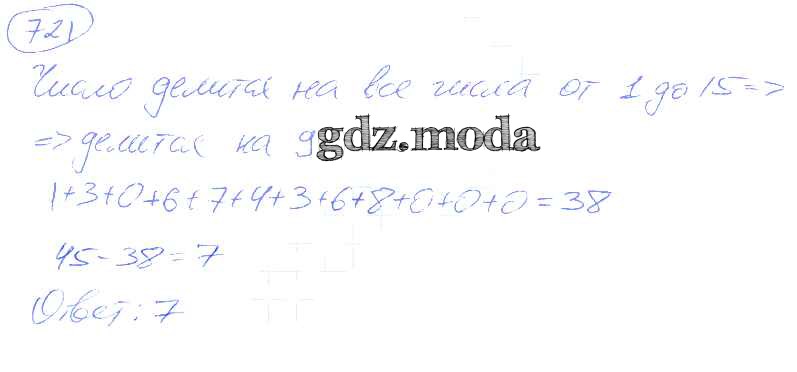 721
Число делится на все числа от 1 до 15 =>
=> делится на 9 gdz.moda
1+3+0+6+7+4+3+6+8+0+0+0=38
45-38=7
Ответ: 7